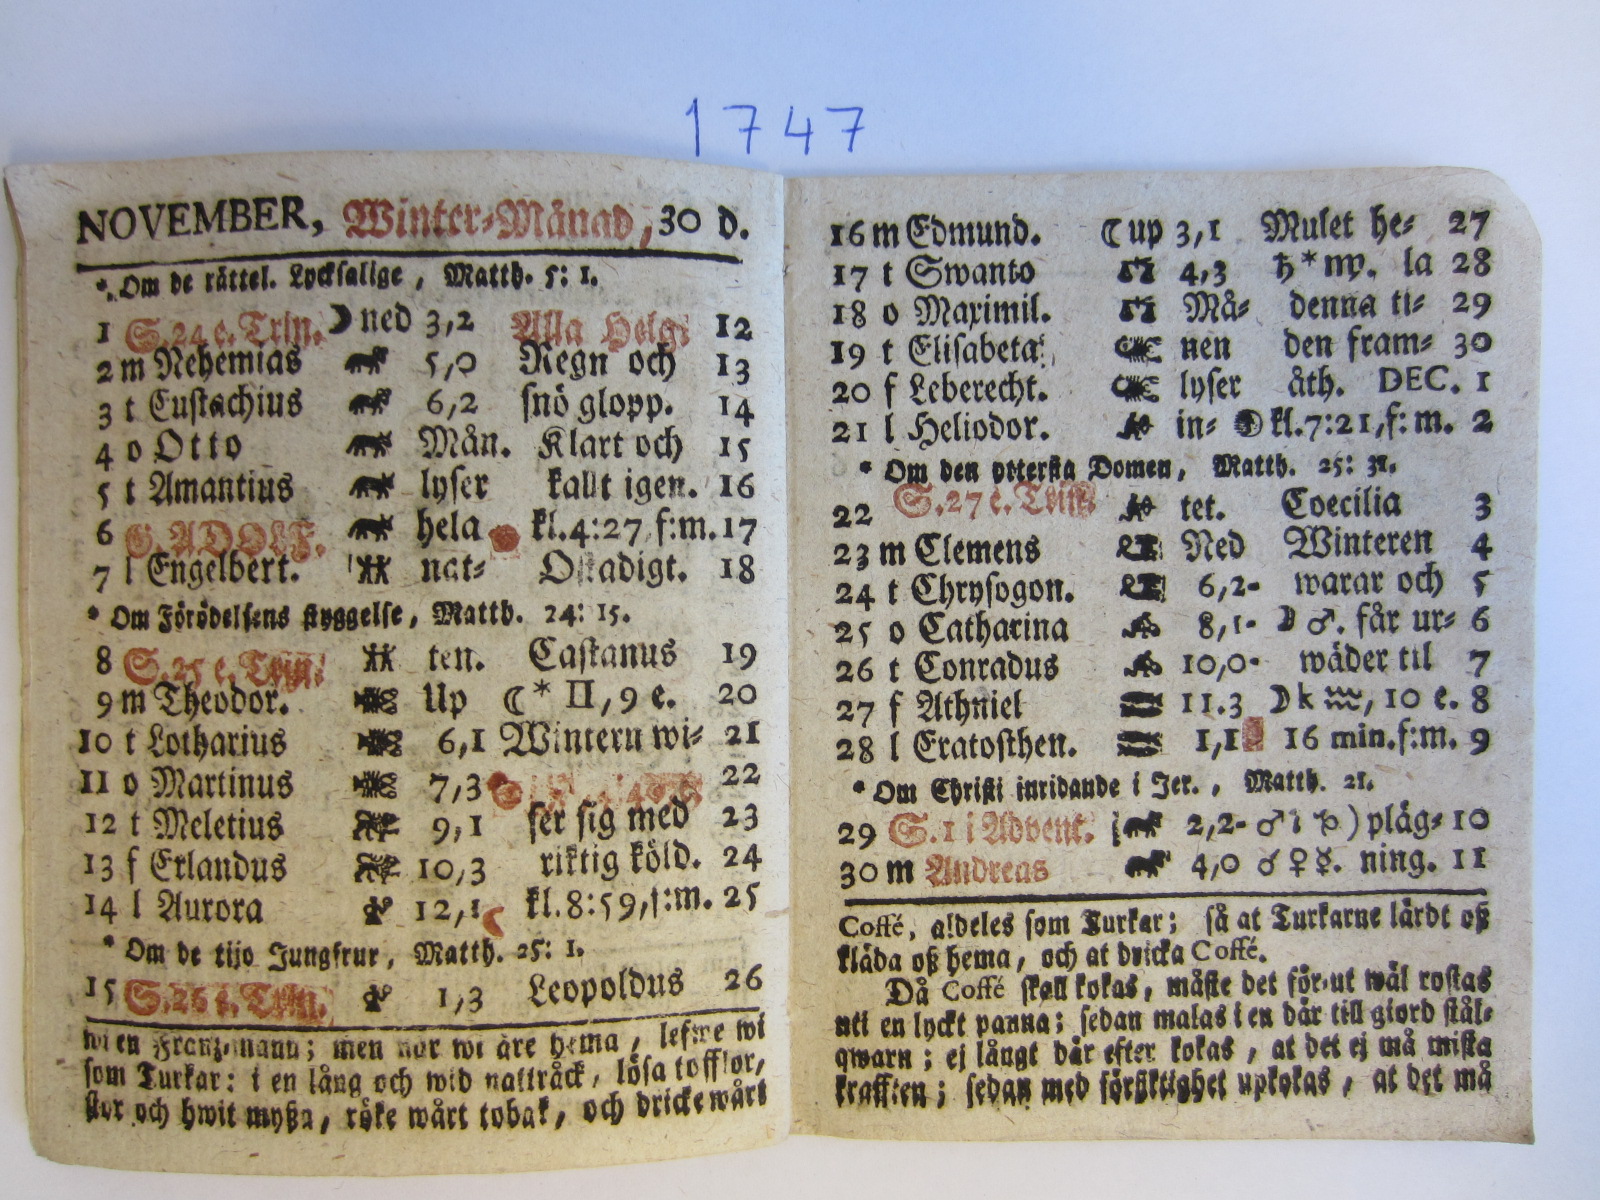 1747
NOVEMBER, Winter-Månad, 30 D.
* Om de rättel. Lycksalige, Matth. 5: 1.
1 S. 24 e. Trin. ☽ ned 3,2 Alla Helg. 12
2 m Nehemias 5,0 Regn och 13
3 t Eustachius 6,2 snö glopp. 14
4 o Otto Mån. Klart och 15
5 t Amantius lyser kallt igen. 16
6 G. ADOLF. hela kl. 4:27 f:m. 17
7 l Engelbert. nat- Ostadigt. 18
* Om Förödelsens styggelse, Matth. 24: 15.
8 S. 25 e. Trin. ten. Castanus 19
9 m Theodor. Up ☾ * II, 9 e. 20
10 t Lotharius 6,1 Wintern wi- 21
11 o Martinus 7,3 22
12 t Meletius 9,1 ser sig med 23
13 f Erlandus 10,3 riktig köld. 24
14 l Aurora 12,1 kl. 8:59, f:m. 25
* Om de tijo Jungfrur, Matth. 25: 1.
15 S. 26 e. Trin. 1,3 Leopoldus 26
wi en Franz-mann; men när wi äre hema, lefwe wi
som Turkar: i en lång och wid nattråck, lösa tofflor,
stor och hwit myßa, röke wårt tobak, och dricke wårt
16 m Edmund. ☾ up 3,1 Mulet he- 27
17 t Swanto 4,3 ♄ * ♍. la 28
18 o Maximil. Må- denna ti- 29
19 t Elisabeta nen den fram- 30
20 f Leberecht. lyser åth. DEC. 1
21 l Heliodor. in- kl. 7:21, f:m. 2
* Om den yttersta Domen, Matth. 25: 31.
22 S. 27 e. Trin. tet. Coecilia 3
23 m Clemens Ned Winteren 4
24 t Chrysogon. 6,2- warar och 5
25 o Catharina 8,1- ☽ ♂. får ur- 6
26 t Conradus 10,0- wäder til 7
27 f Athniel 11.3 ☽ k ♒, 10 e. 8
28 l Eratosthen. 1,1 16 min. f:m. 9
* Om Christi inridande i Jer., Matth. 21.
29 S. 1 i Advent. 2,2- ♂ i ♑ ) pläg- 10
30 m Andreas 4,0 ☌ ♀ ☿. ning. 11
Coffé, aldeles som Turkar; så at Turkarne lärdt oß
kläda oß hema, och at dricka Coffé.
Då Coffé skall kokas, måste det för-ut wäl rostas
uti en lyckt panna; sedan malas i en där till giord stål-
qwarn; ej långt där efter kokas, at det ej må mista
krafften; sedan med försiktighet upkokas, at det må